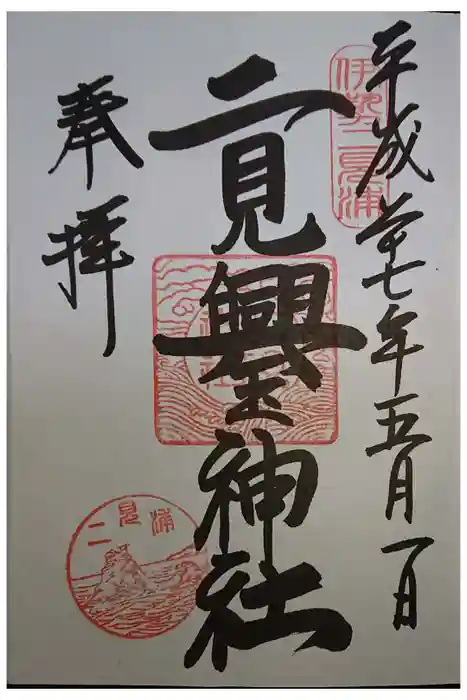 平成廿七年五月一日
伊勢二見浦
二見興玉神社
奉拝
二見浦